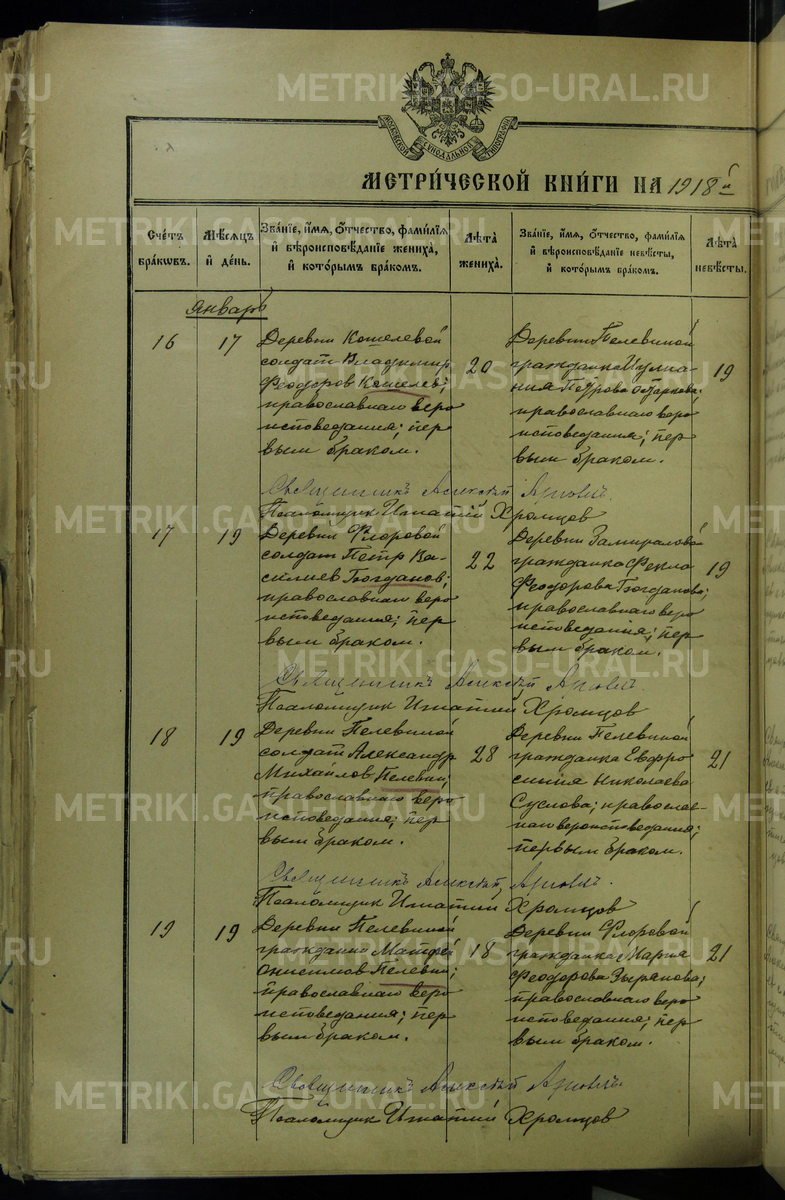 METRIKI.GASO-URAL.RU
МОСКОВСКОЙ СѴНОДАЛЬНОЙ ТИПОГРАФІИ
МЕТРИ́ЧЕСКОЙ КНИ́ГИ НА 1918й
СЧЕ́ТЪ БРА́КѠВЪ.
МѢ́СЯЦЪ Й ДЕ́НЬ.
ЗВА́НІЕ, И́МЯ, О́ТЧЕСТВО, ФАМИ́ЛІЯ
И ВѢРОИСПОВѢ́ДАНІЕ ЖЕНИХА̀,
И КОТО́РЫМЪ БРА́КОМЪ.
ЛѢ́ТА ЖЕНИХА̀.
ЗВА́НІЕ, И́МЯ, О́ТЧЕСТВО, ФАМИ́ЛІЯ
И ВѢРОИСПОВѢ́ДАНІЕ НЕВѢ́СТЫ,
И КОТО́РЫМЪ БРА́КОМЪ.
ЛѢ́ТА НЕВѢ́СТЫ.
Январь
16
17
Деревни Кошелевой
солдат Владимир
Феодоров Кошелев;
православнаго веро
исповедания; пер
вым браком.
20
Деревни Пелевиной
гражданка Иулиа-
ния Петрова
православнаго веро
исповедания; пер
вым браком.
19
Священникъ Алексѣй
Псаломщик Игнатий Хромцов
17
19
Деревни Флоровой
солдат Петр Ва-
силиев Богданов;
православнаго веро
исповедания; пер
вым браком.
22
Деревни
гражданка Фекла
Феодорова Богданова;
православнаго веро
исповедания; пер
вым браком.
19
Священникъ Алексѣй
Псаломщик Игнатий Хромцов
18
19
Деревни Пелевиной
солдат Александр
Михайлов Пелевин;
православнаго веро
исповедания; пер
вым браком.
28
Деревни Пелевиной
гражданка Евфро
синия Николаева
Суслова; православ-
наго вероисповедания;
первым браком.
21
Священникъ Алексѣй
Псаломщик Игнатий Хромцов
19
19
Деревни Пелевиной
гражданин Матфей
Онисимов Пелевин;
православнаго веро
исповедания; пер
вым браком.
18
Деревни Флоровой
гражданка Мария
Феодорова Зырянова;
православнаго веро
исповедания; пер
вым браком.
21
Священникъ Алексѣй
Псаломщик Игнатий Хромцов